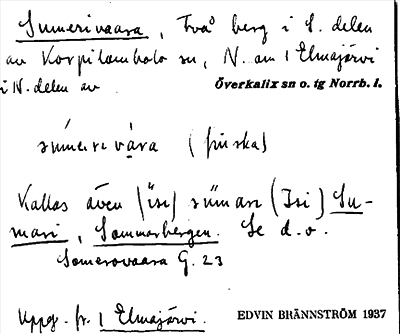 Sumerivaara, Två berg i S. delen
av Korpilombolo sn, N. om 1 Elmajärvi
i N. delen av Överkalix sn o. tg Norrb. l.
súmerivàra (finska)
Kallas även (Iso) sŭmari (Isi) Su-
mari, Sommarbergen. Se d.o.
Somerovaara G. 23
Uppg. fr. 1 Elmajärvi.
EDVIN BRÄNNSTRÖM 1937